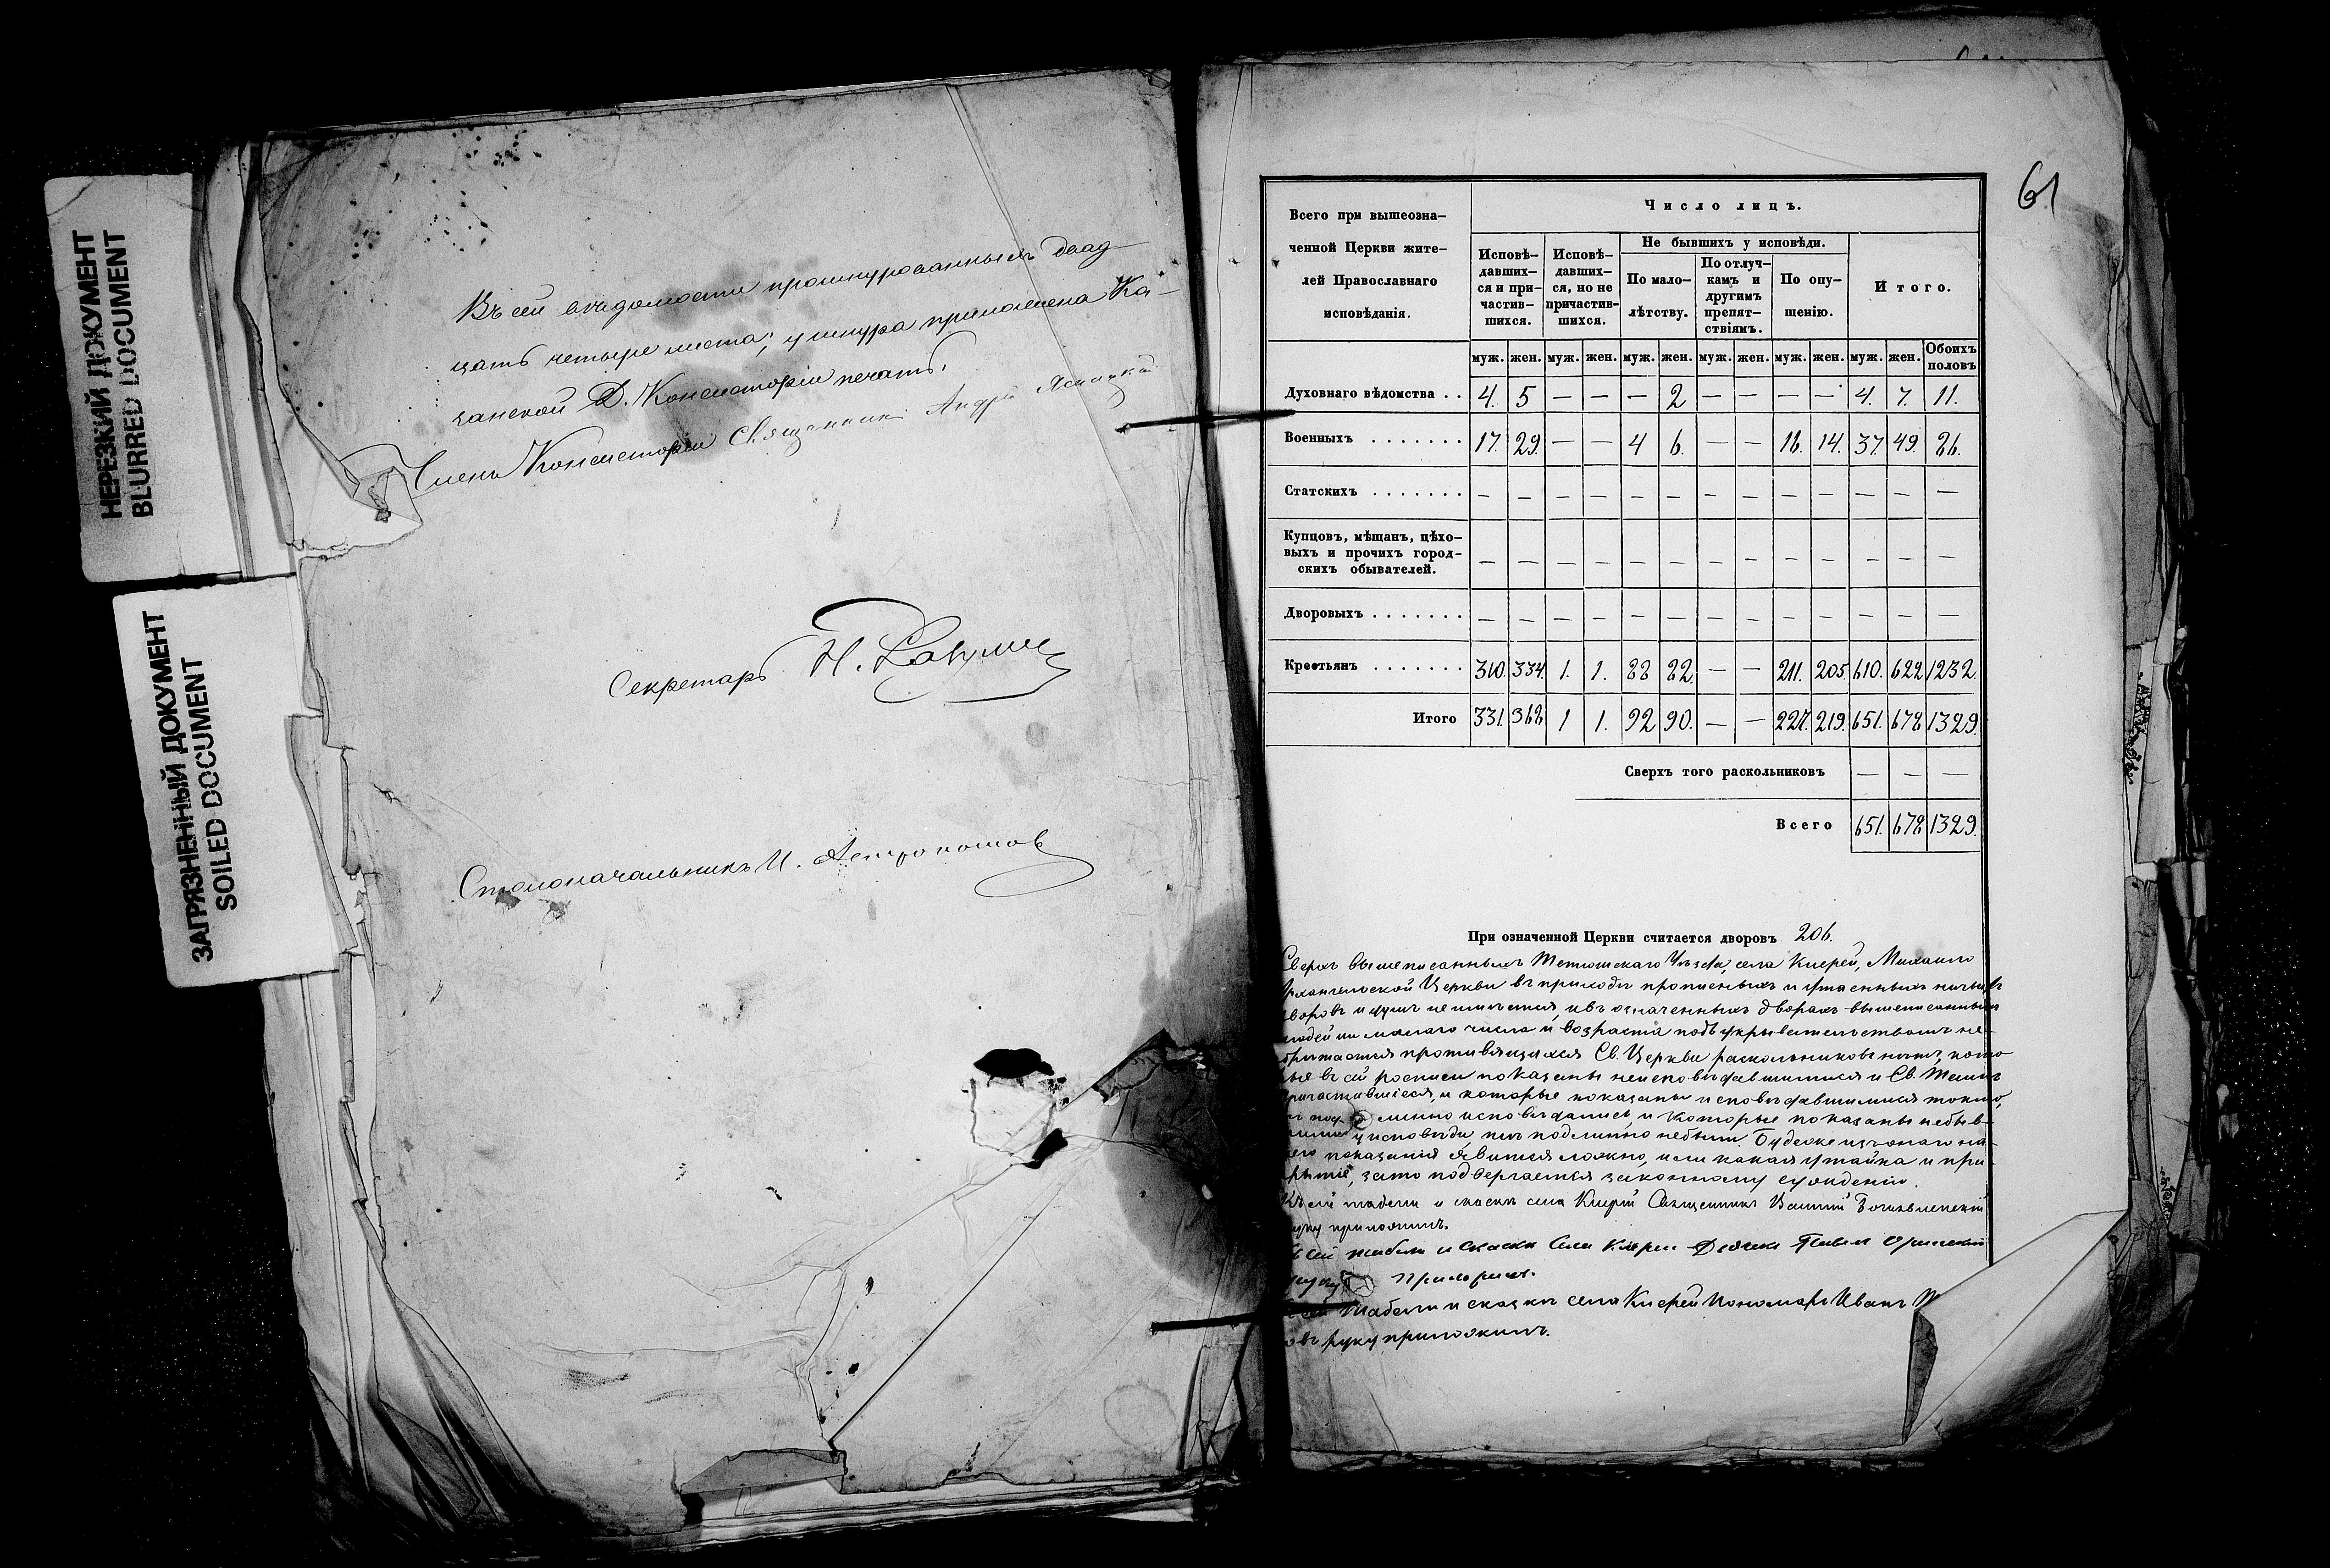 НЕРЕЗКИЙ ДОКУМЕНТ
BLURRED DOCUMENT
ЗАГРЯЗНЕННЫЙ ДОКУМЕНТ
SOILED DOCUMENT
Въ сей вѣдомости прошнурованныхъ двад-
цать четыре листа; у шнура приложена Ка-
занской Д. Консисторіи печать.
Членъ Консисторіи Священникъ Андрей
Секретарь Н.
Столоначальникъ И.
61
Всего при вышеозна-
ченной Церкви жите-
лей Православнаго
исповѣданія.
Число лицъ.
Исповѣ-
давших-
ся и при-
частив-
шихся.
Исповѣ-
давших-
ся, но не
причастив-
шихся.
Не бывшихъ у исповѣди.
По мало-
лѣтству.
По отлуч-
камъ и
другимъ
препят-
ствіямъ.
По опу-
щенію.
Итого.
муж. жен. муж. жен. муж. жен. муж. жен. муж. жен. муж. жен. Обоихъ половъ
Духовнаго вѣдомства . . 4. 5 — — — 2 — — — — 4. 7. 11.
Военныхъ . . . . . . . 17. 29. — — 4 6. — — 16. 14. 37. 49. 86.
Статскихъ . . . . . . . — — — — — — — — — — — — —
Купцовъ, мѣщанъ, цѣхо-
выхъ и прочихъ город-
скихъ обывателей. — — — — — — — — — — — — —
Дворовыхъ . . . . . . . — — — — — — — — — — — — —
Крестьянъ . . . . . . . 310. 334. 1. 1. 88 82. — — 211. 205. 610. 622 1232.
Итого 331. 368 1 1. 92 90. — — 227. 219. 651. 678 1329.
Сверхъ того раскольниковъ — — —
Всего 651. 678 1329.
При означенной Церкви считается дворовъ 206.
Сверхъ вышеписанныхъ Тетюшскаго Уѣзда, села Киерей, Михаило
Архангельской Церкви въ приходѣ прописныхъ и утаенныхъ ничьихъ
дворовъ и душъ не имѣется, и въ означенныхъ дворахъ вышеписанныхъ
людей ни малаго числа и возраста подъ укрывательствомъ не-
противящихся Св. Церкви раскольниковъ нѣтъ, кото
въ сей росписи показаны исповѣдавшимися и Св. Таинъ
и которые показаны исповѣдавшимися токмо,
исповѣдались, и которые показаны не быв-
у исповѣди, тѣ подлинно не были. Буде же изъ онаго на-
показанія явится ложно, или какая утайка и при-
за то подвергается законному сужденію.
Къ сей табели и сказкѣ села Киерей Священникъ Василій Богоявленскій
руку приложилъ.
сей табели и сказкѣ села Киереи Дьячекъ Павелъ
приложилъ.
сей табели и сказкѣ села Киерей Пономарь Иванъ
овъ руку приложилъ.